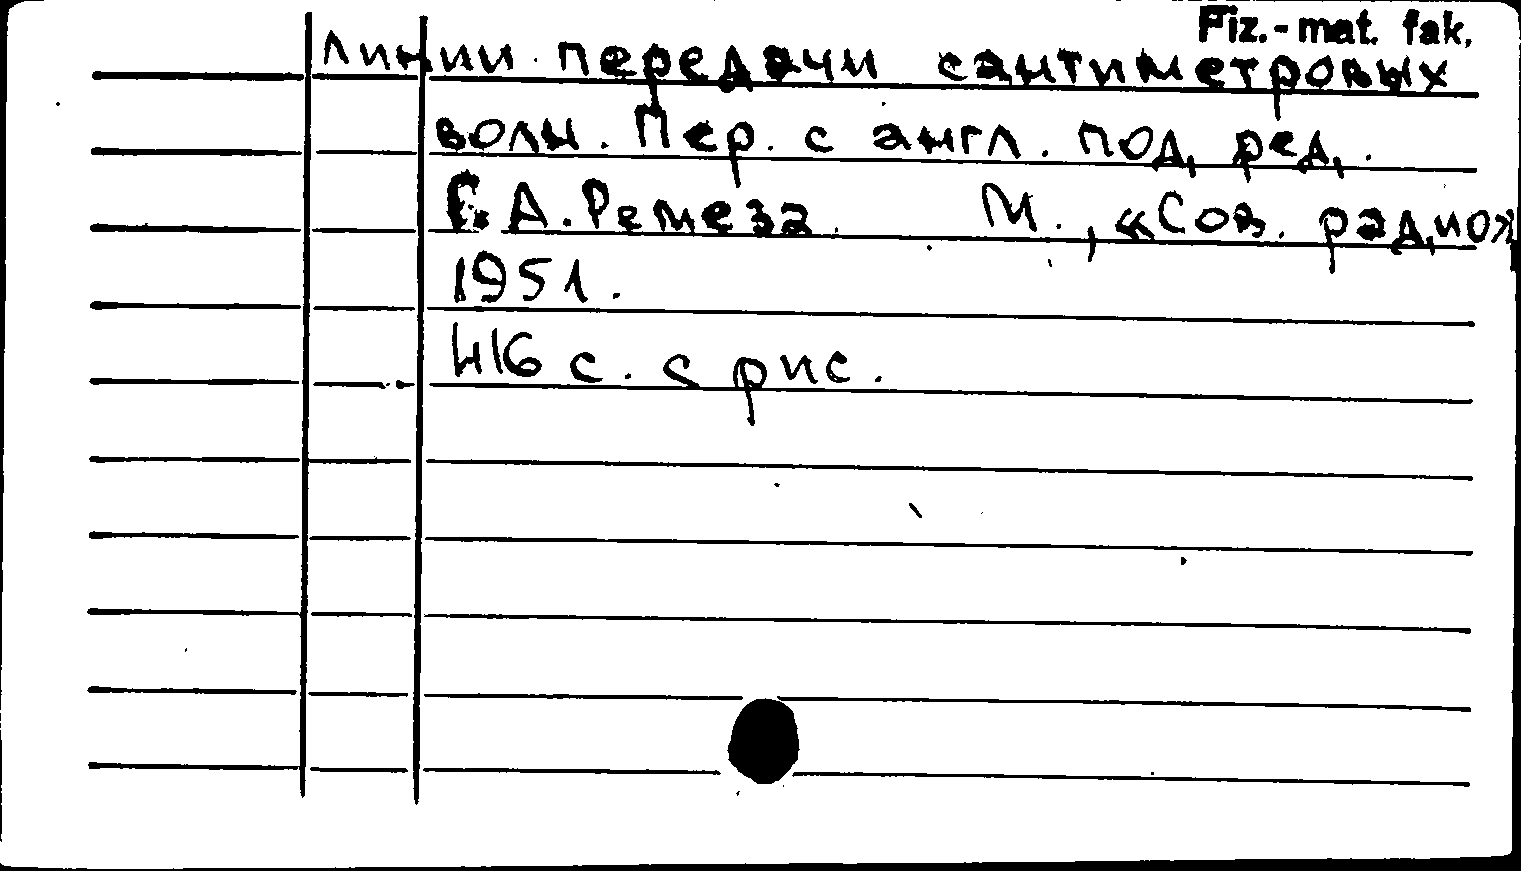 Fiz.-mat. fak.
Линии передачи сантиметровых
волн. Пер. с англ. под ред.
Г. А. Ремеза. М., «Сов. радио»
1951.
416 с. с рис.